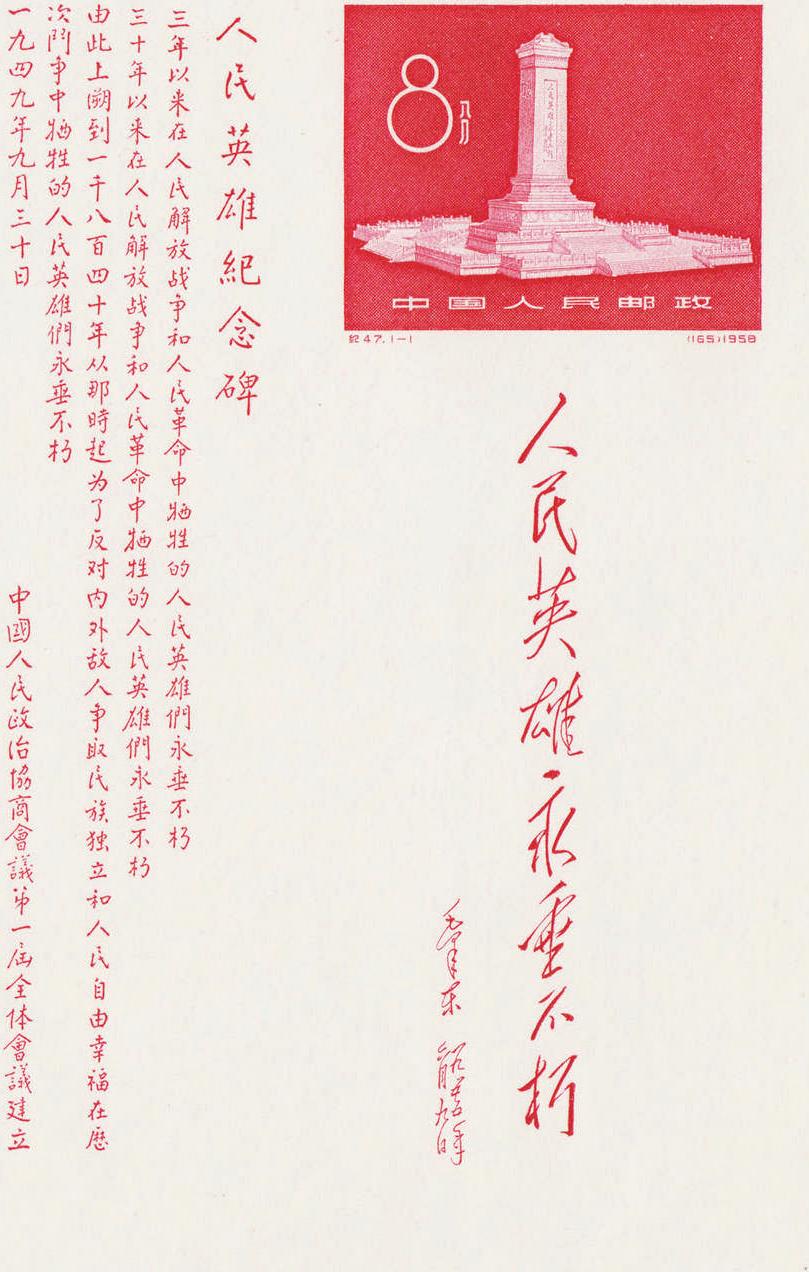 8分
中国人民邮政
纪47.1-1
(165)1958
人民英雄永垂不朽
毛泽东
人民英雄紀念碑
三年以来在人民解放战争和人民革命中牺牲的人民英雄們永垂不朽
三十年以来在人民解放战争和人民革命中牺牲的人民英雄們永垂不朽
由此上溯到一千八百四十年从那時起为了反对内外敌人争取民族独立和人民自由幸福在歷
次鬥争中牺牲的人民英雄們永垂不朽
一九四九年九月三十日
中國人民政治協商會議第一届全体會議建立